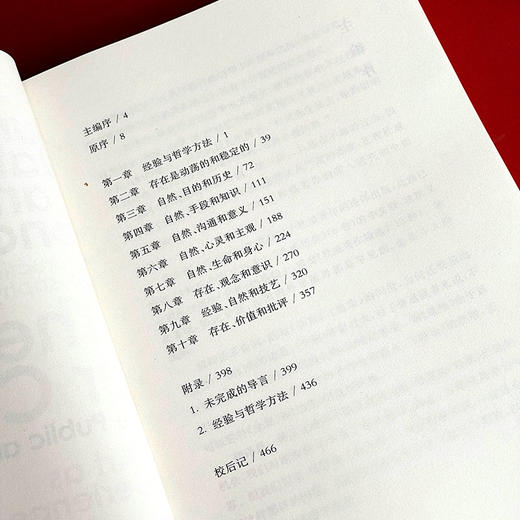 主编序 / 4
原序 / 8
第一章 经验与哲学方法 / 1
第二章 存在是动荡的和稳定的 / 39
第三章 自然、目的和历史 / 72
第四章 自然、手段和知识 / 111
第五章 自然、沟通和意义 / 151
第六章 自然、心灵和主观 / 188
第七章 自然、生命和身心 / 224
第八章 存在、观念和意识 / 270
第九章 经验、自然和技艺 / 320
第十章 存在、价值和批评 / 357
附录 / 398
1. 未完成的导言 / 399
2. 经验与哲学方法 / 436
校后记 / 466
Public